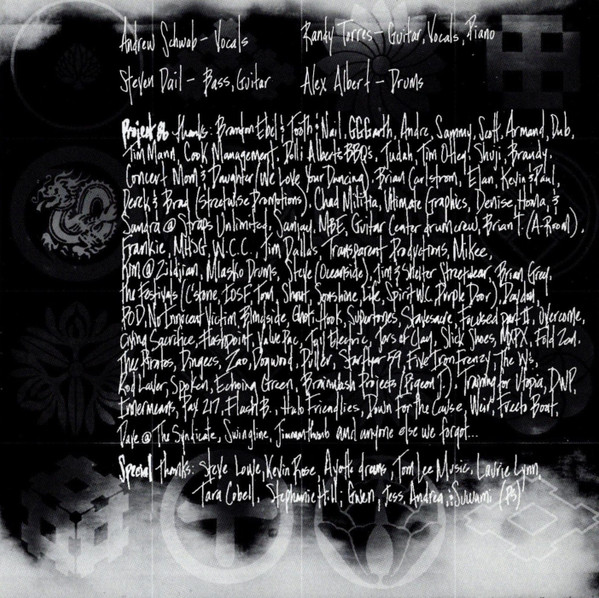 Andrew Schwab - Vocals
Randy Torres - Guitar, Vocals, Piano
Steven Dail - Bass, Guitar
Alex Albert - Drums
Project 86 thanks: Brandon Ebel & Tooth & Nail, GGGarth, Andre, Sammy, Scott, Armand, Dub,
Tim Mann, Cook Management, Polli Albert's BBQ's, Judah, Tim Ottley, Shuji, Brandy,
Concert Mom & Daughter (We Love Your Dancing), Brian Carlstrom, Elan, Kevin & Paul,
Derek & Brad (Streetwise Promotions), Chad Militia, Ultimate Graphics, Denise, Howla, &
Sandra @ Straps Unlimited, Samjay, MBE, Guitar Center drum crew, Brian T (A-Room),
Frankie, MHSG, W.C.C., Jim Dallas, Transparent Productions, Mikee,
Kim @ Zildjian, Mlasko Drums, Steve (Oceanside), Tim & Shelter Streetwear, Brian Grey,
The Festivals (C'stone, TOSF, Tom, Shout, Sunshine, Life, Spirit W.C. Purple Door),
P.O.D, No Innocent Victim, Blindside, Ghoti Hook, Supertones, Stavesacre, Focused part II, Overcome,
Crying Sacrifice, Flashpoint, Value Pac, Joy Electric, Jars of Clay, Slick Shoes, MXPX, Fold Zand.
Thee Spivies, Dingees, Zao, Dogwood, Puller, Starflyer 59, Five Iron Frenzy, The W's,
Rod Laver, Spoken, Echoing Green, Brainwash Projects (Pigeon J), Training for Utopia, DWP,
Innermeans, Pax 217, Flash B., Halo Friendlies, Down For the Cause, Weir, Freeto Boat,
Dave @ The Syndicate, Swingline, Jimmamthumb and anyone else we forgot...
Special thanks: Steve Lowe, Kevin Rose, Ayotte drums, Tom Lee Music, Laurie Lynn,
Tara Cobell, Stephanie Hill, Gwen, Jess, Andrea,